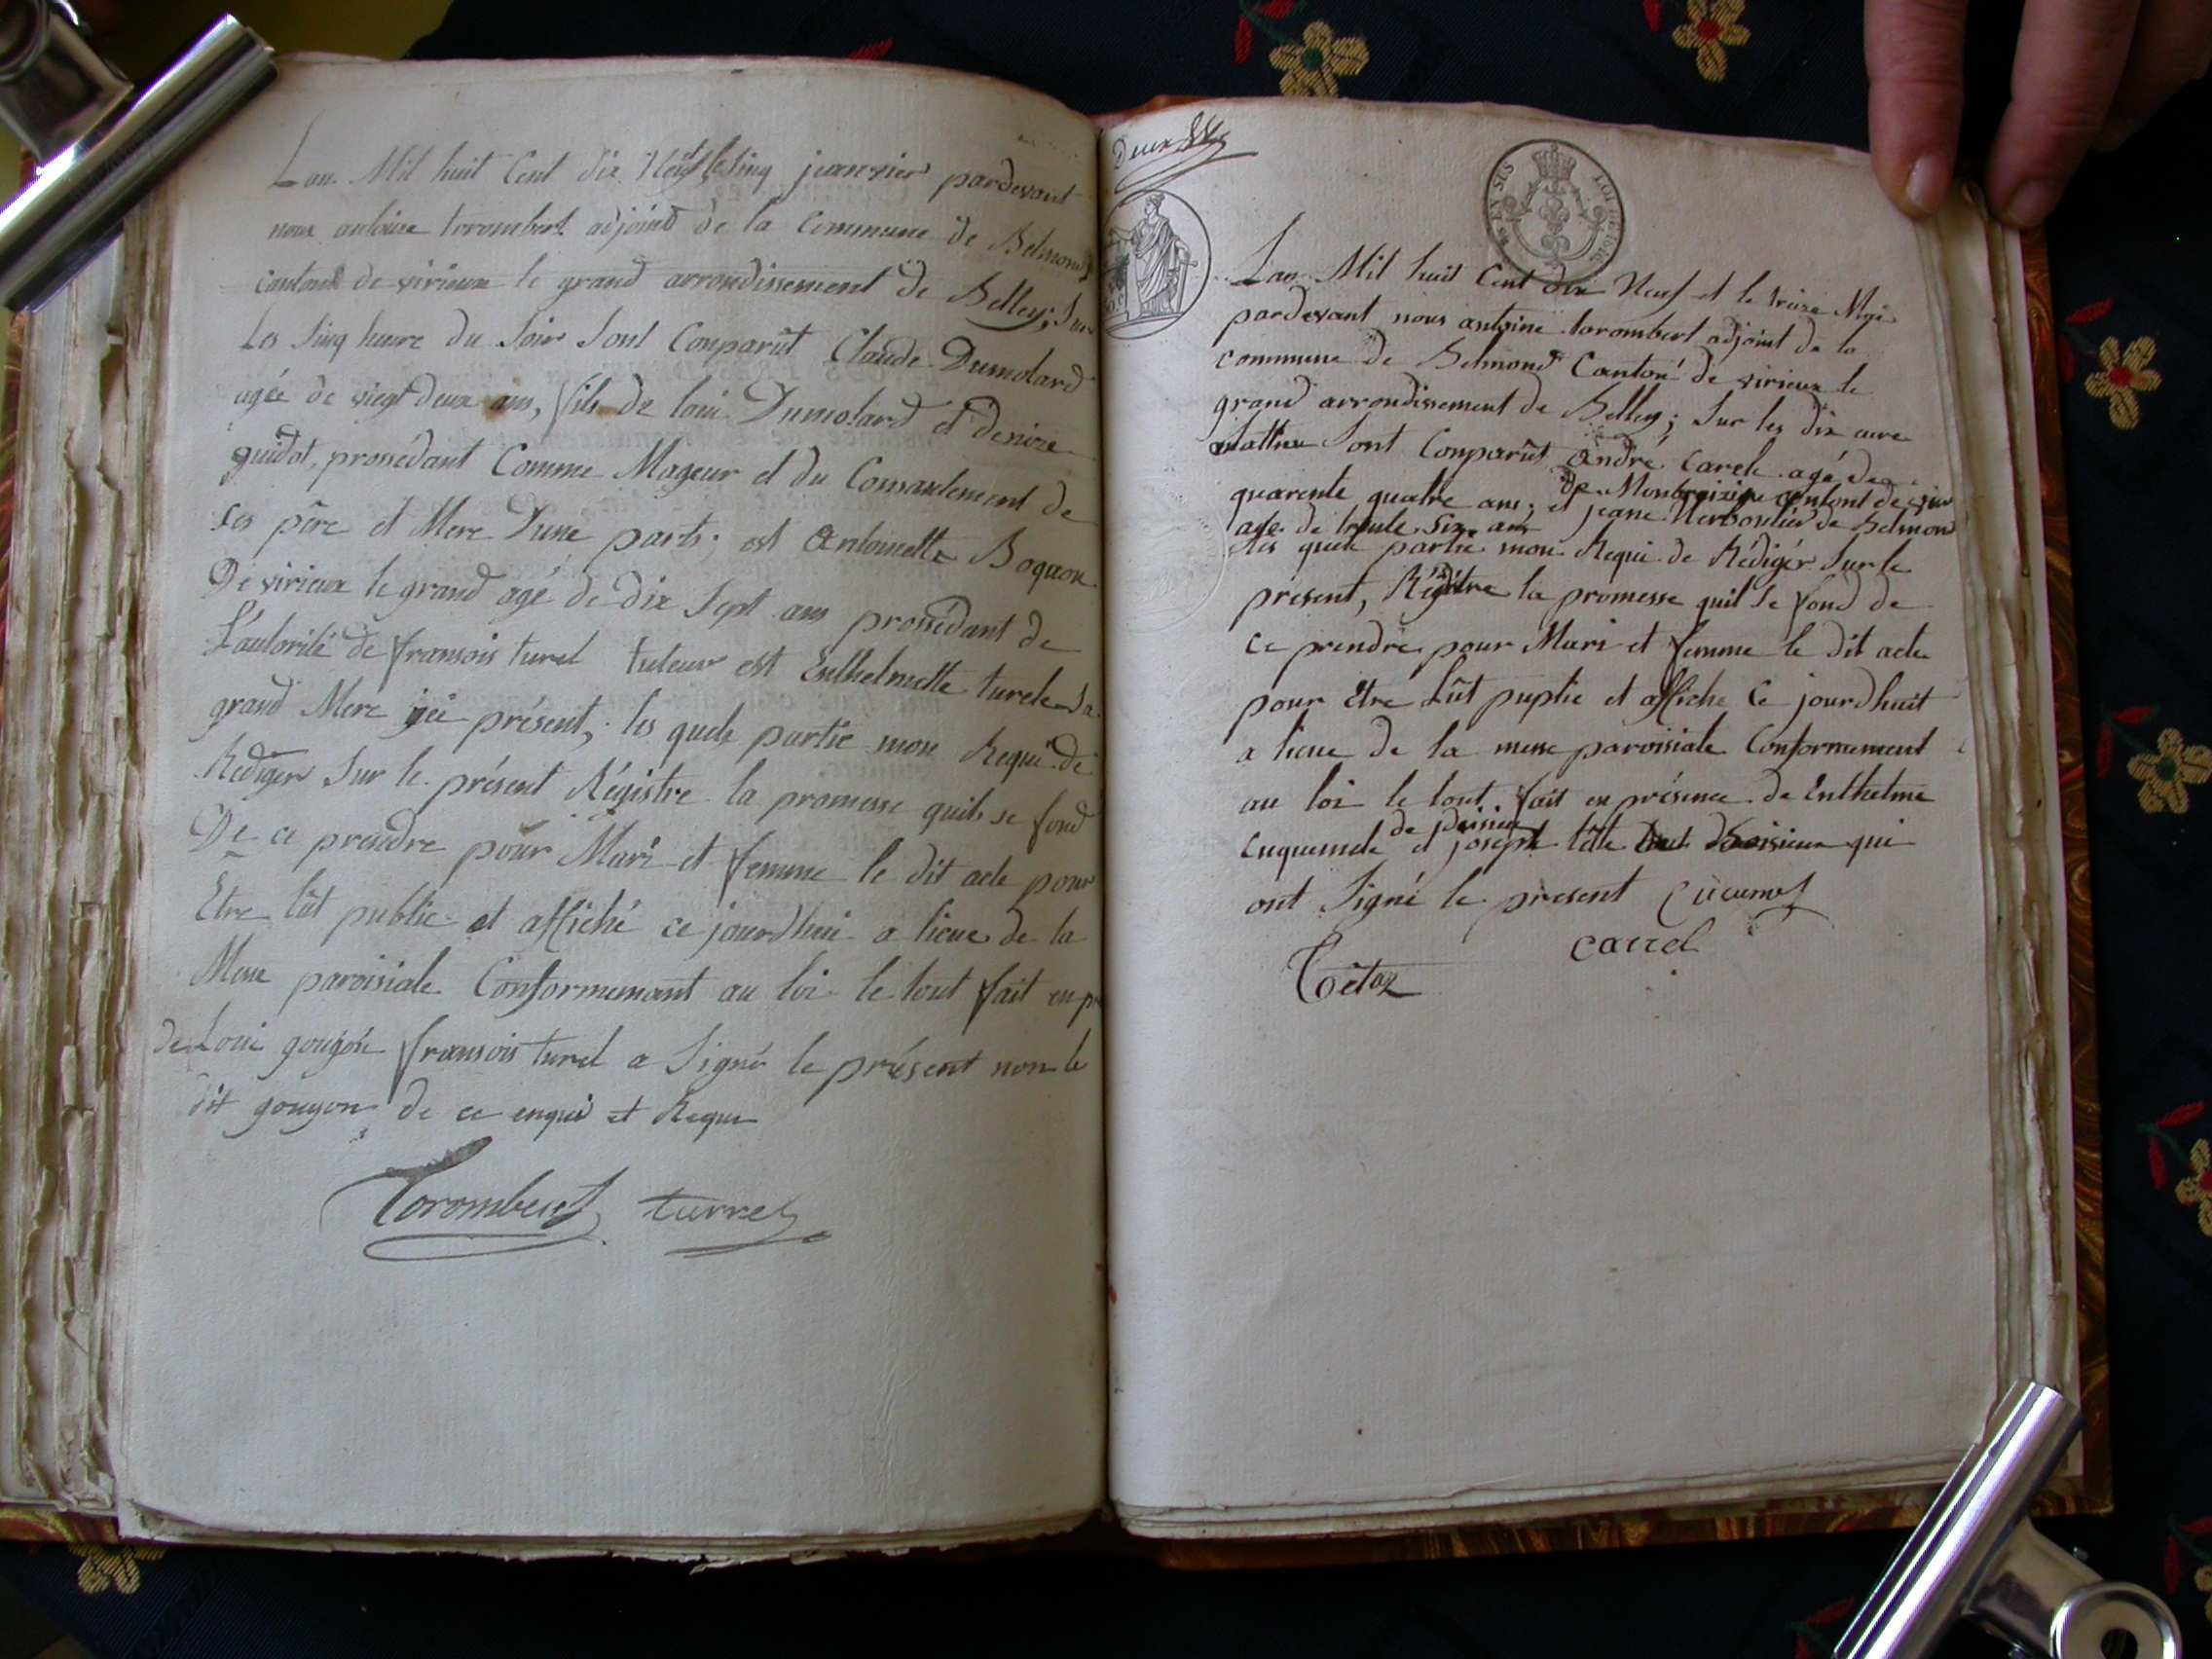 Lan Mil huit Cent dix Neuf et le Sinq janvier pardevant
nous antoine torombert adjoint de la Commune de Belmond
cantont de virieux le grand arrondissement de Belley; Sur
les Sinq heure du Soir Sont Conparût Claude Dumolard
agée de viegt deux ans, fils de loui Dumolard et denize
guidot, prossédant Comme Mageur et du Consantement de
ses père et Mere Dune parts; est Antoinette Boquon
De virieux le grand agé de dix Sept ans prossédant de
L'autorité de fransois turel tuteur est Enthelmette turele Sa
grand Mere ici présent; les quels partie mon Requi de
Rediger Sur le présent Régistre la promesse quils se fond
De ce prendre pour Mari et femme le dit acte pour
Etre lût public et affiché ce jourdhui a lieue de la
Messe paroisiale Conformemant au loi le tout fait en
de Loui goujon fransois turel a Signé le présent non le
dit goujon de ce enqui et Requi
Torombert turrel
Deux
EN SUS
Lan Mil huit Cent dix Neuf et le treize
pardevant nous antoine torombert adjoint de la
commune de Belmond Cantoné de virieux le
grand arrondissement de Belley; Sur les dix aure
Sont Conparût André Carele agé de
quarente quatre ans; et jeane de Belmond
age de trente Six ans
les quele partie mon Requi de Rédigér Sur le
présent, Régitre la promesse quil se fond de
ce prendre pour Mari et femme le dit acte
pour Etre Lût puplie et affiche Ce jourdhuit
a lieue de la messe paroisiale Conformement
au loi le tout fait en présence de Enthelme
de
et joseph qui
ont Signé le présent
carrel